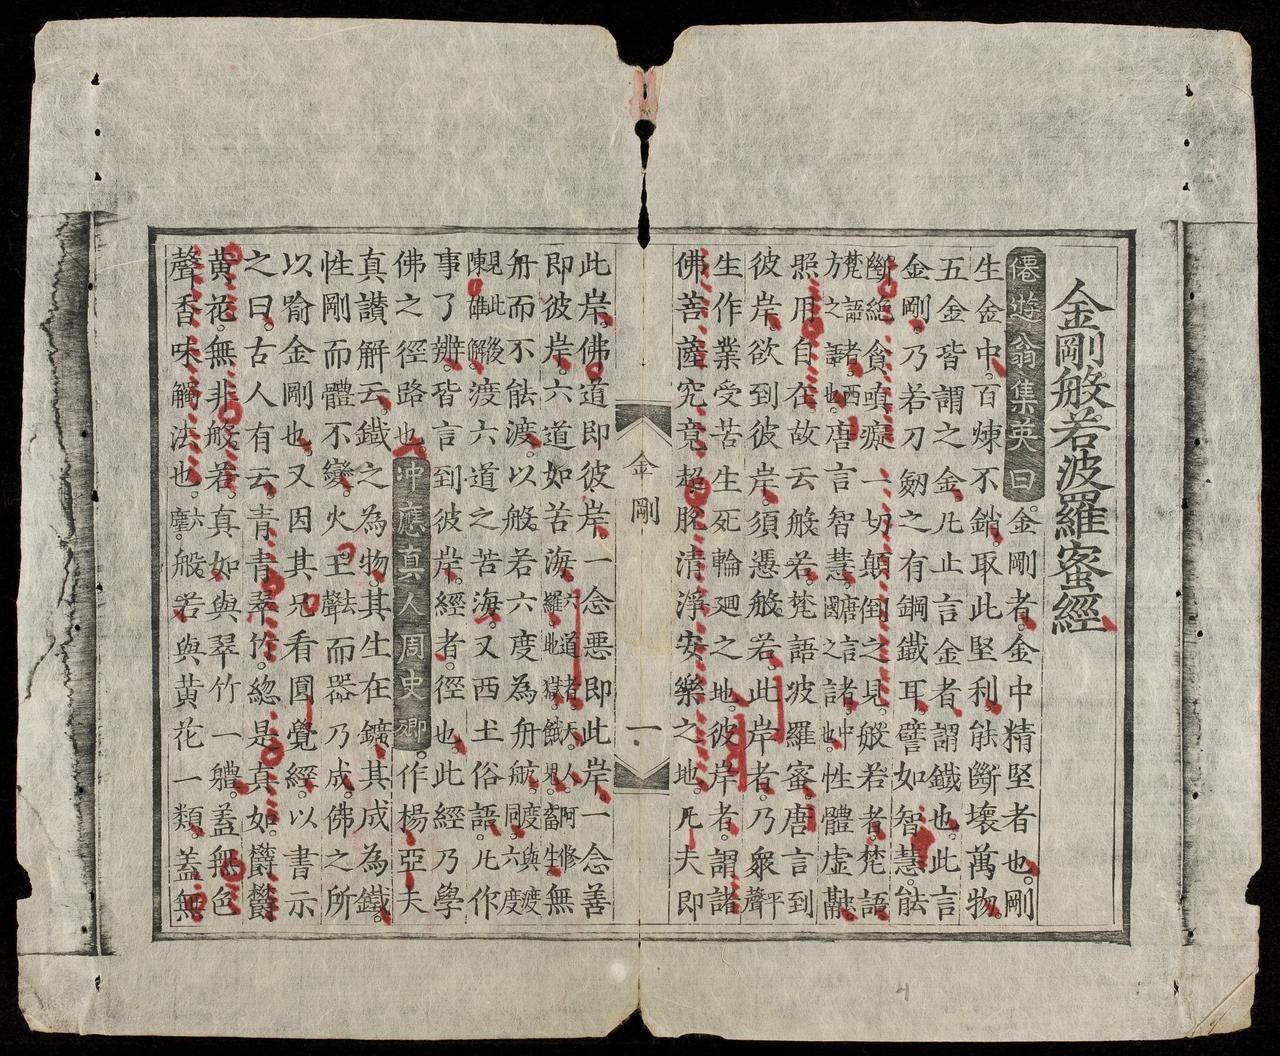 金剛般若波羅蜜經
僊遊翁集英曰。金剛者。金中精堅者也。剛
生金中。百煉不銷。取此堅利。能斷壞萬物。
五金皆謂之金。凡止言金者。謂鐵也。此言
金剛。乃若刀劒之有鋼鐵耳。譬如智慧。能
斷絶貪嗔癡一切顛倒之見。般若者。梵語
梵語者。西方之語也。唐言智慧。唐言諸。中國之語也。性體虛融。
照用自在。故云般若。梵語波羅蜜。唐言到
彼岸。欲到彼岸。須憑般若。此岸者。乃衆平聲
生作業受苦生死輪廻之地。彼岸者。謂諸
佛菩薩究竟超脫清淨安樂之地。凡夫即
金剛 一
此岸。佛道即彼岸。一念惡即此岸。一念善
即彼岸。六道如苦海。六道者。天。人。阿修羅。地獄。餓鬼。畜生。無
舟而不能渡。以般若六度為舟航。度與渡同。六度
見此後陳雄解。渡六道之苦海。又西土俗語。凡作
事了辨。皆言到彼岸。經者。徑也。此經乃學
佛之徑路也。冲應真人周史卿。作楊亞夫
真讃解云。鐵之為物。其生在鑛。其成為鐵。
性剛而體不變。火王去聲而器乃成。佛之所
以喻金剛也。又因其兄看圓覺經。以書示
之曰。古人有云。青青翠竹。緫是真如。欝欝
黃花。無非般若。真如與翠竹一體。葢無色
聲香味觸法也。六塵。般若與黃花一類。葢無